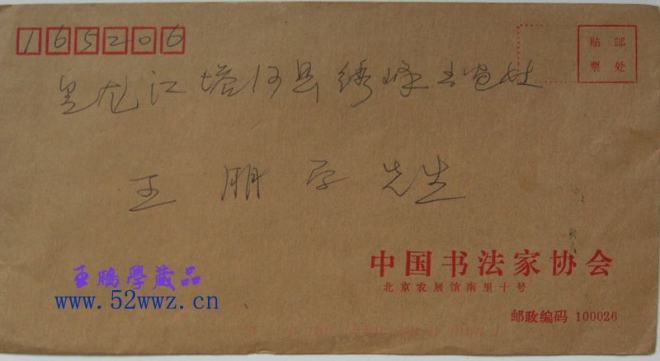 165206
贴 邮
票 处
黑龙江塔河县绣峰
王鹏学先生
中国书法家协会
北京农展馆南里十号
邮政编码 100026
王鹏學藏品
www.52wwz.cn